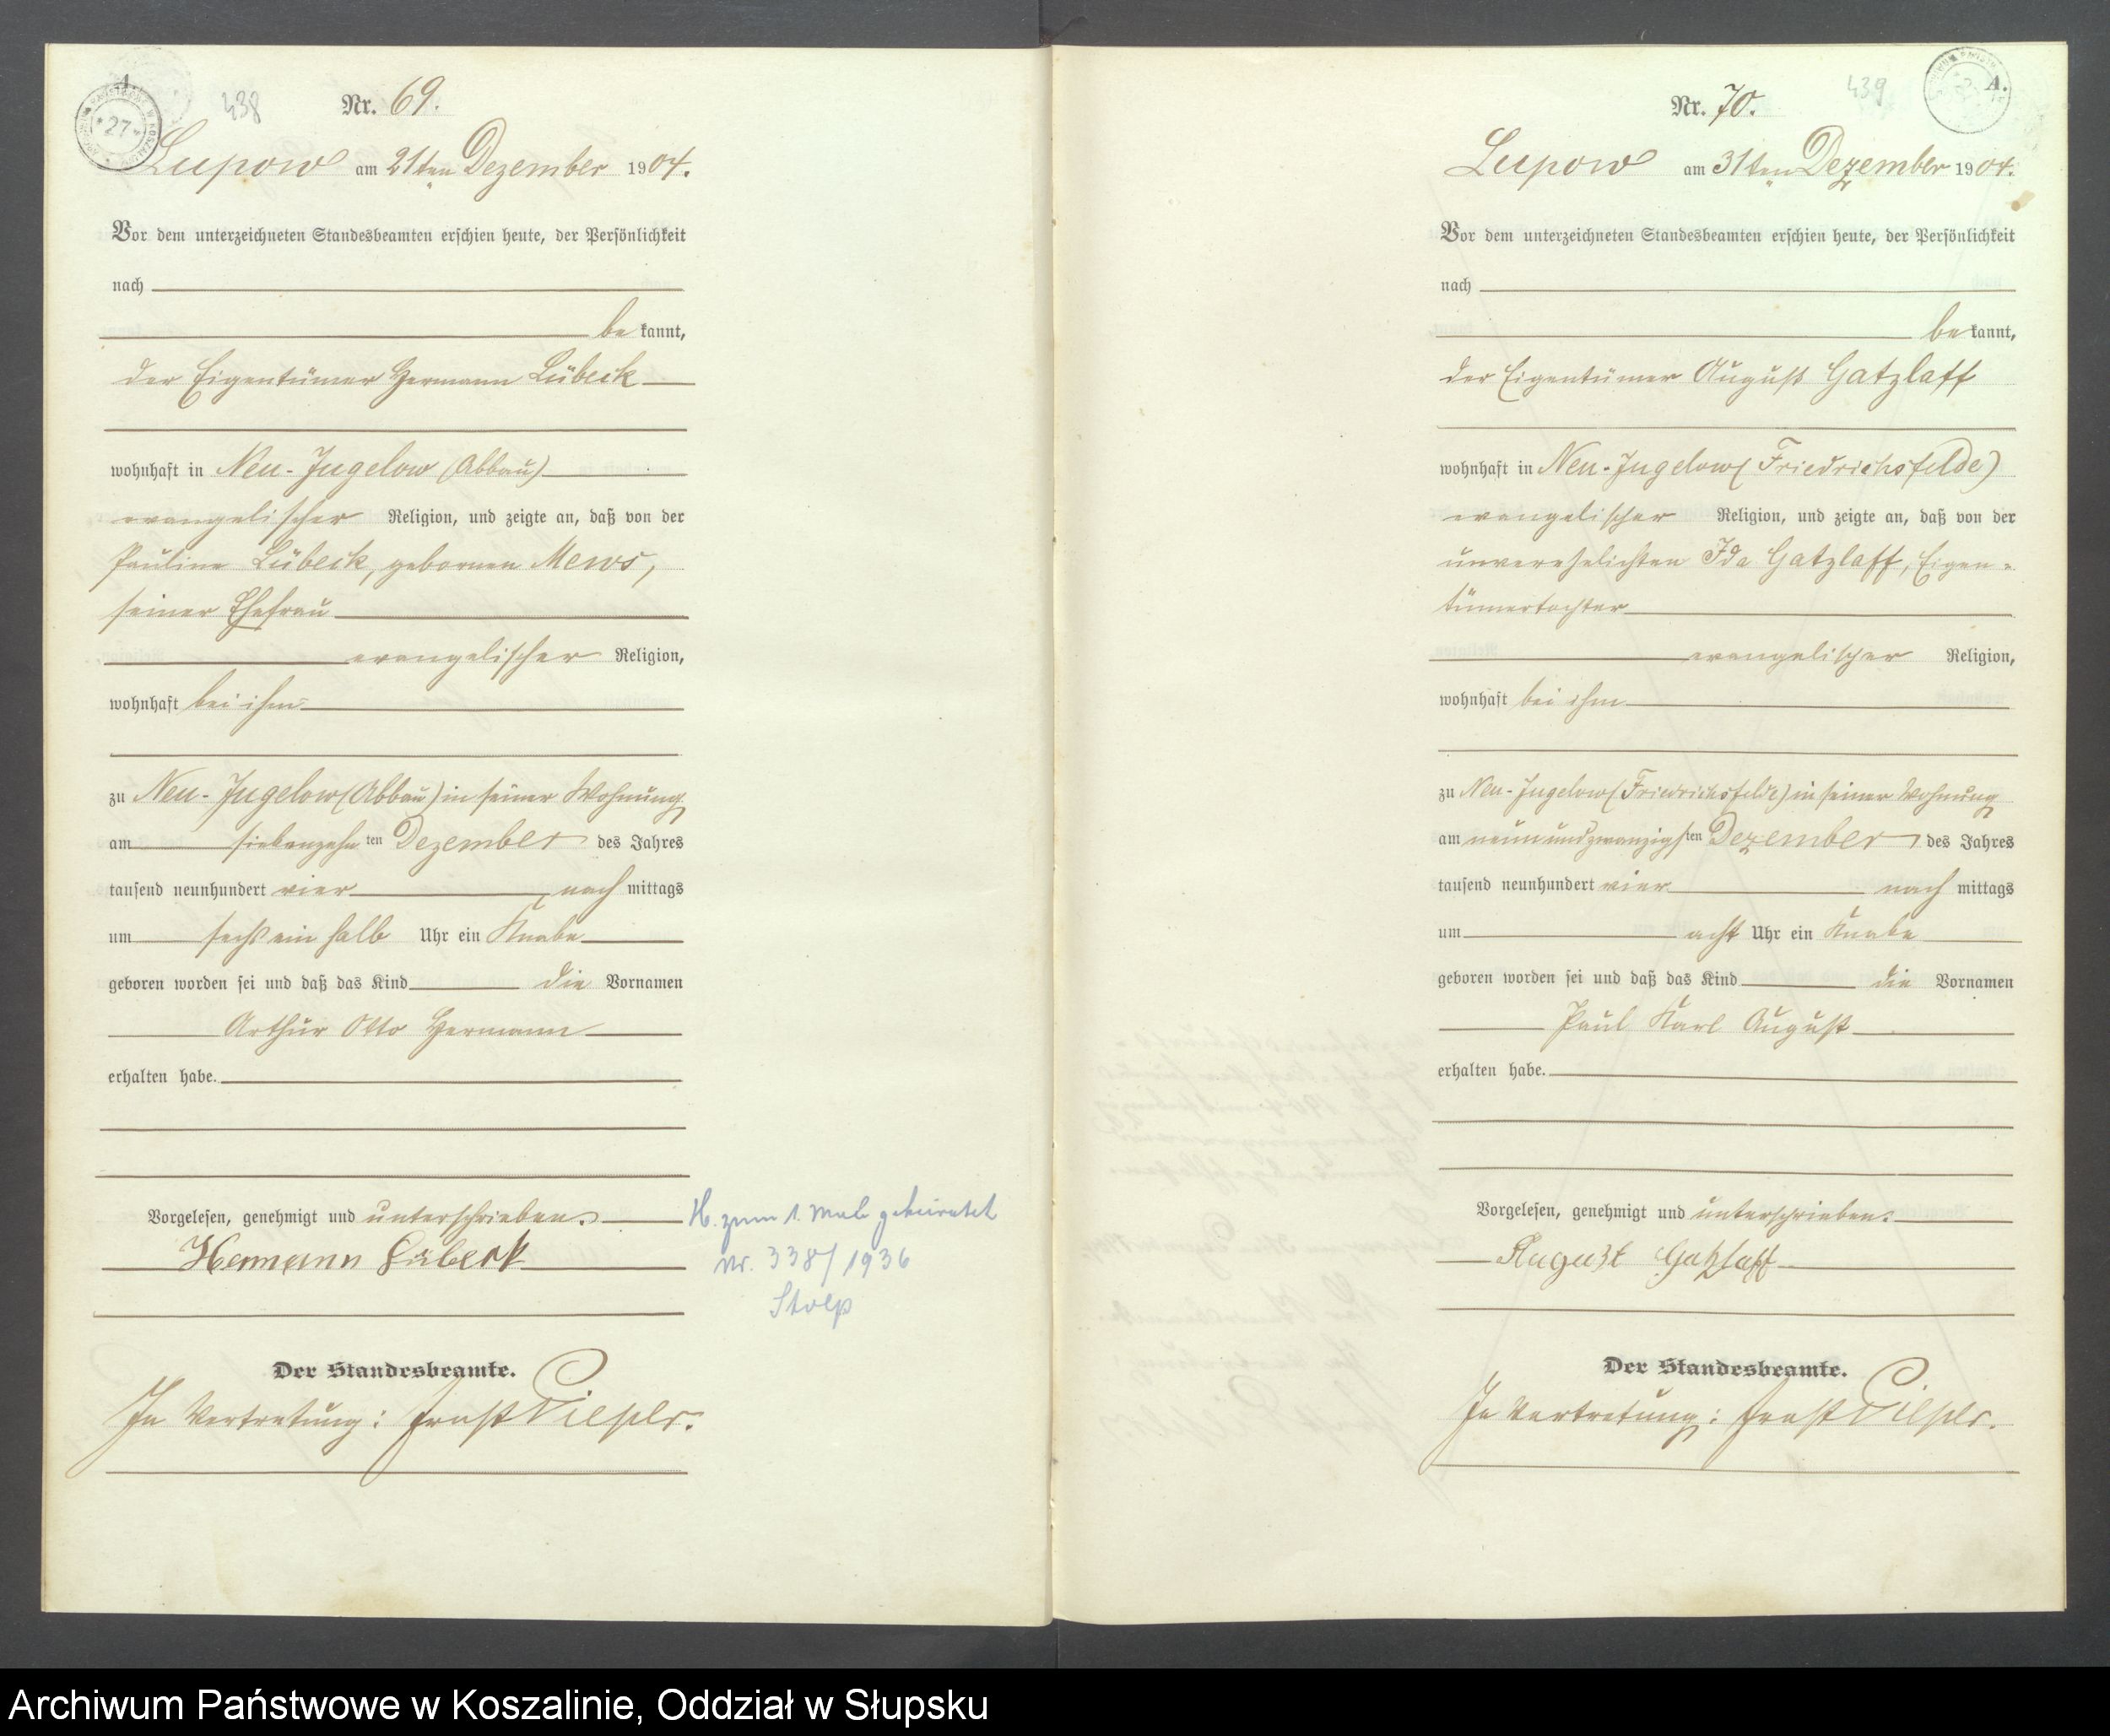 A.
27
438
Nr. 69.
Lupow am 21ten Dezember 1904.
Vor dem unterzeichneten Standesbeamten erschien heute, der Persönlichkeit
nach
be kannt,
der Eigentümer Hermann Lübeck
wohnhaft in Neu-Jugelow (Abbau)
evangelischer Religion, und zeigte an, daß von der
Pauline Lübeck, gebornen Mews,
seiner Ehefrau
evangelischer Religion,
wohnhaft bei ihm
zu Neu-Jugelow (Abbau) in seiner Wohnung
am siebenzehn ten Dezember des Jahres
tausend neunhundert vier nach mittags
um sechs ein halb Uhr ein Knabe
geboren worden sei und daß das Kind die Vornamen
Arthur Otto Hermann
erhalten habe.
Vorgelesen, genehmigt und unterschrieben.
Hermann Lübeck
H. zum 1. Male geheiratet
Nr. 338/1936
Stolp
Der Standesbeamte.
In Vertretung: Ernst
439
A.
Nr. 70.
Lupow am 31ten Dezember 1904.
Vor dem unterzeichneten Standesbeamten erschien heute, der Persönlichkeit
nach
be kannt,
der Eigentümer August Gatzlaff
wohnhaft in Neu-Jugelow (Friedrichsfelde)
evangelischer Religion, und zeigte an, daß von der
unverehelichten Ida Gatzlaff, Eigen-
tümertochter
evangelischer Religion,
wohnhaft bei ihm
zu Neu-Jugelow (Friedrichsfelde) in seiner Wohnung
am neunundzwanzigsten Dezember des Jahres
tausend neunhundert vier nach mittags
um acht Uhr ein Knabe
geboren worden sei und daß das Kind die Vornamen
Paul Karl August
erhalten habe.
Vorgelesen, genehmigt und unterschrieben.
August Gatzlaff
Der Standesbeamte.
In Vertretung: Ernst
Archiwum Państwowe w Koszalinie, Oddział w Słupsku